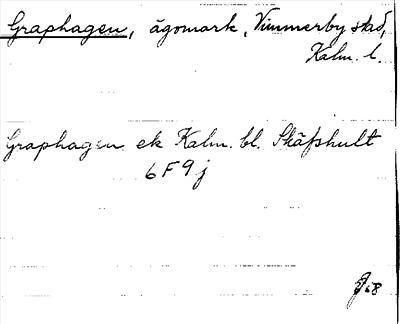 Graphagen, ägomark, Vimmerby stad,
Kalm. l.
Graphagen ek Kalm. bl. Skäfshult
6 F 9 j